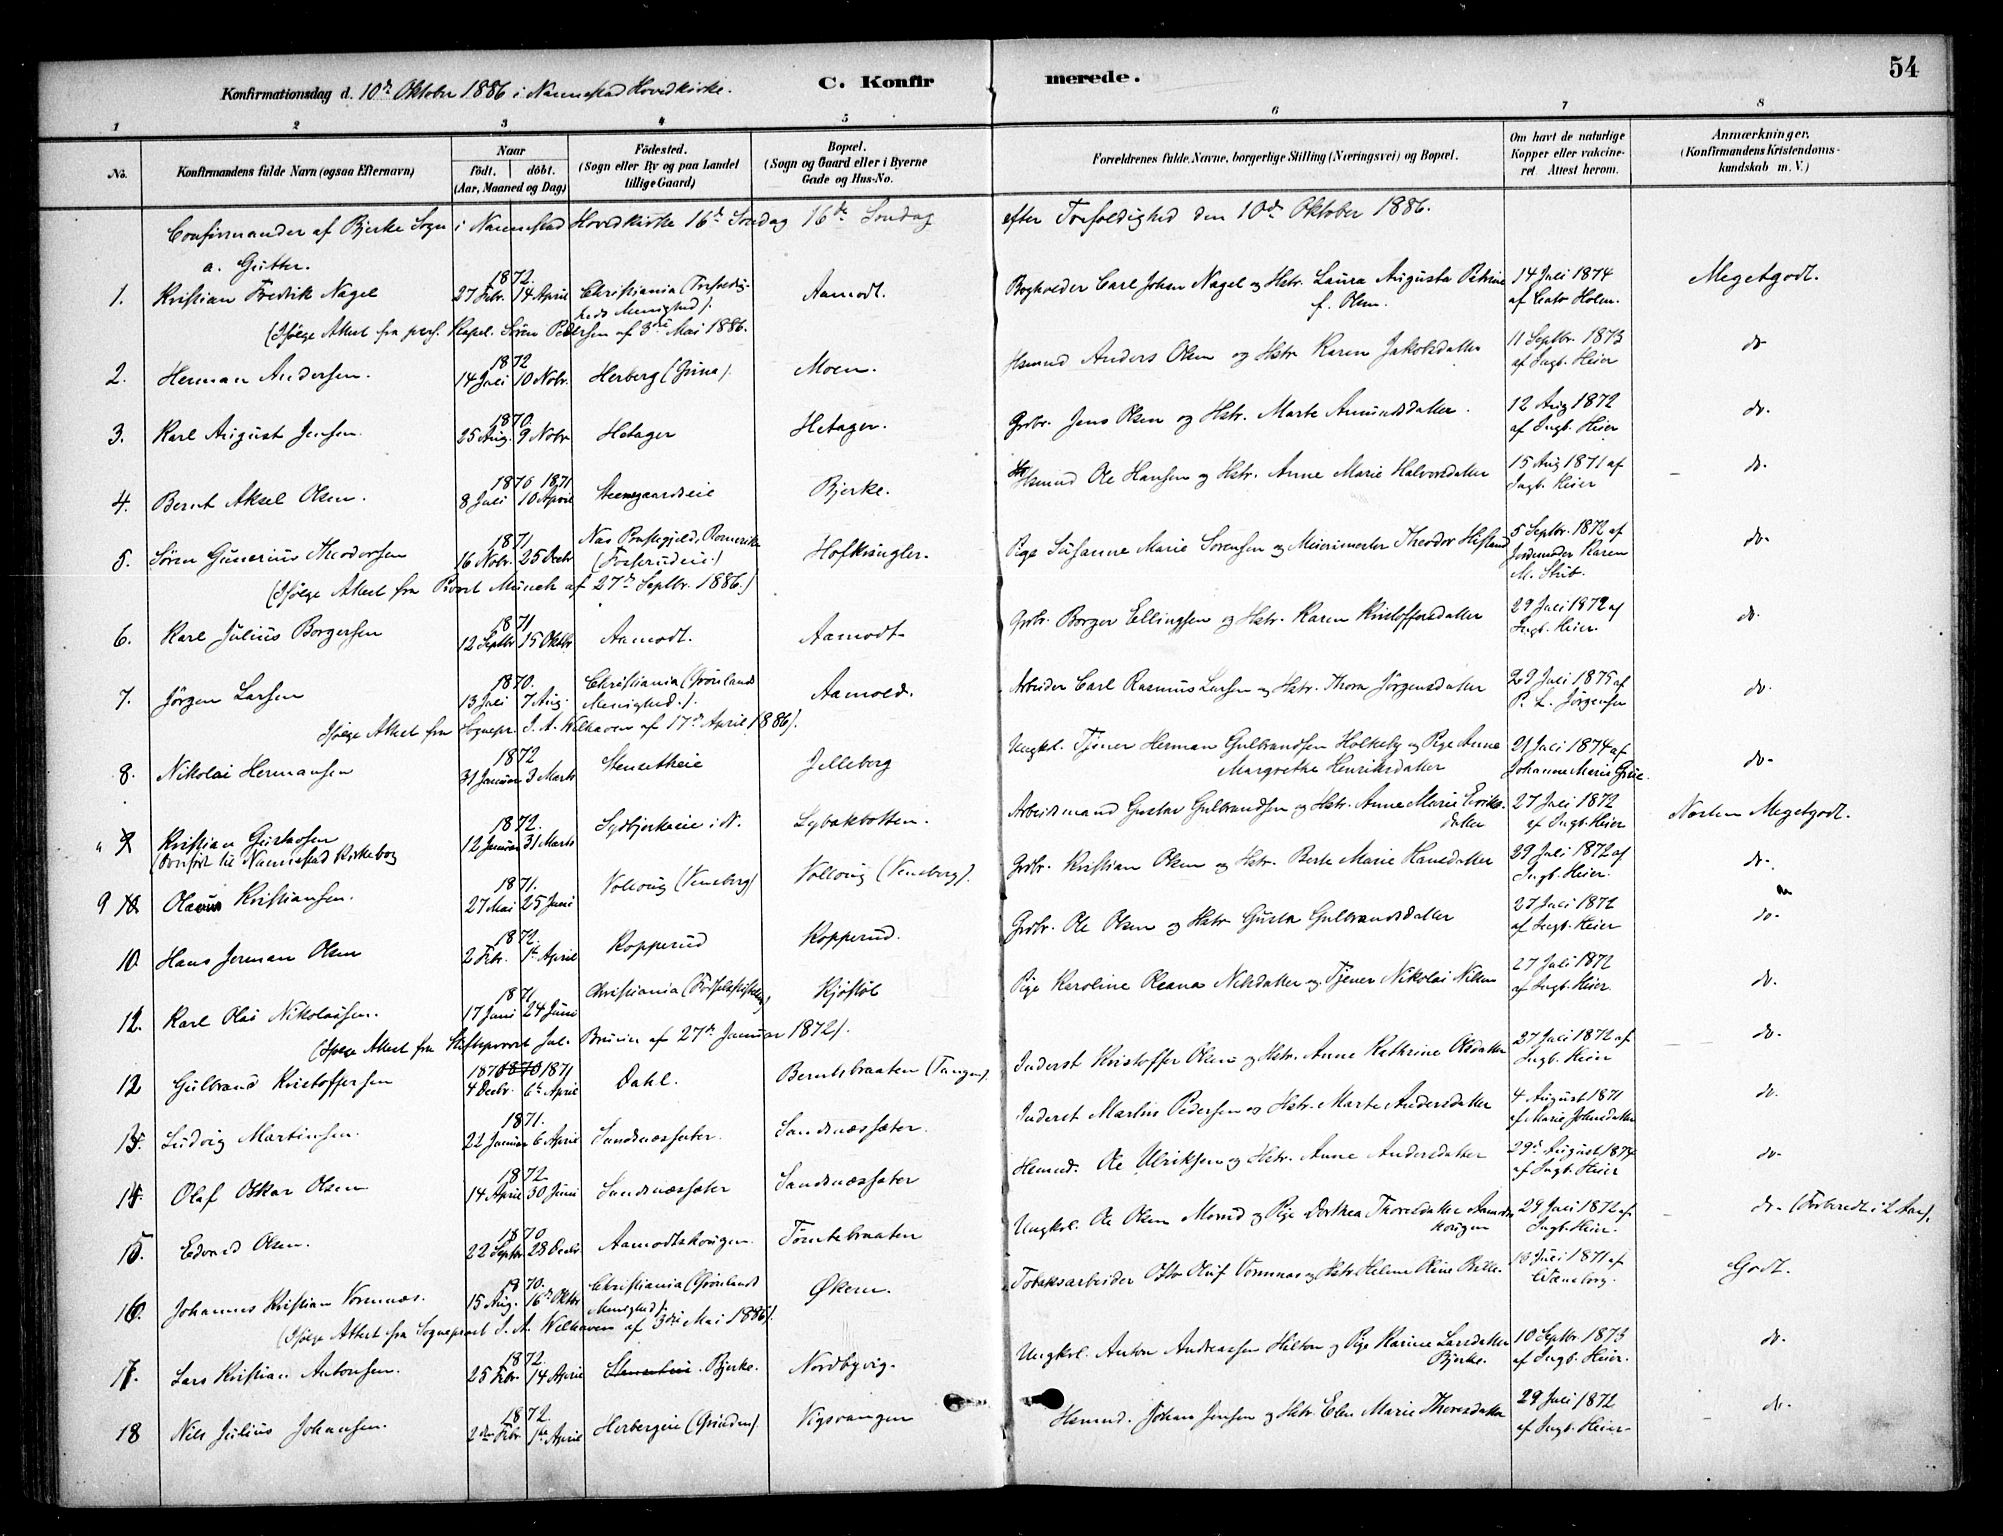 54
Konfirmationsdag d. 10de Oktober 1886 i Nannestad Hovedkirke.
C. Konfirmerede.
1 2 3 4 5 6 7 8
No.
Konfirmandens fulde Navn (ogsaa Efternavn)
Naar
födt. döbt.
(Aar, Maaned og Dag)
Födested.
(Sogn eller By og paa Landet tillige Gaard)
Bopæl.
(Sogn og Gaard eller i Byerne Gade og Hus-No.
Forældrenes fulde Navne, borgerlige Stilling (Næringsvei) og Bopæl.
Om havt de naturlige Kopper eller vakcineret. Attest herom.
Anmærkninger.
(Konfirmandens Kristendomskundskab m. V.)
Confirmander af Bjerke Sogn i Nannestad Hovedkirke 16de Søndag 16de Søndag efter Trefoldighed den 10de Oktober 1886.
a. Gutter.
1. Kristian Fredrik Nagel 1872. 27 Febr. 14 April Christiania (Trefoldigheds Menighed). Aamodt. Bogholder Carl Johan Nagel og Hstr. Laura Augusta Petrine f. Olsen. 14 Juli 1874 af Holm. Megetgodt.
(Ifølge Attest fra pers. Kapel. Søren Pedersen af 3die Mai 1886.
2. Herman Andersen. 1872 14 Juli 10 Nobr. Herberg (Grina). Moen. Hsmnd Anders Olsen og Hstr. Karen Jakobsdatter 11 Septbr. 1873 af Ingb. Heier do
3. Karl August Jensen. 1870. 25 Aug. 9 Nobr. Hetager Hetager. Grbr. Jens Olsen og Hstr. Marte Amundsdatter. 12 Aug 1872 af Ingb. Heier do.
4. Bernt Aksel Olsen. 1870 1871 8 Juli 10 April Steensgaardseie Bjerke. Hsmnd Ole Hansen og Hstr. Anne Marie Halvorsdatter 15 Aug 1871 af Ingb. Heier do.
5. Søren Gunerius Theodorsen 1871 16 Nobr. 25 Decbr Næs Præstegjeld, Romerike (Fosserudeie) Hofkvugler. Pige Susanne Marie Sørensen og Meierimester Theodor 5 Septbr. 1872 af Jordemoder Karen M. Stub. do-
(Ifølge Attest fra Provst Münch af 27de Septbr. 1886.)
6. Karl Julius Borgersen 1871 12 Septbr 15 Oktbr Aamodt. Aamodt. Grbr. Borger Ellingsen og Hstr. Karen Kristoffersdatter 29 Juli 1872 af Ingb. Heier. do.
7. Jörgen Larsen 1870. 13 Juli 7 Aug. Christiania (Grönlands Menighed.). Aamodt. Arbeider Carl Rasmus Larsen og Hstr. Thora Jörgensdatter 29 Juli 1875 af P. L. Jørgensen do.
Ifølge Attest fra Sognepr. J. A. Welhaven af 17de April 1886).
8. Nikolai Hermansen 1872 31 Januar 3 Marts Jelleberg Ungkl. Tjener Herman Gulbrandsen Holkeby og Pige Anne Margrethe Henriksdatter 21 Juli 1874 af Johanne Marie do-
9 Kristian Gustafsen 1872. 12 Januar 31 Marts Sydbjerkeeie i N. Lybakbotten. Arbeidsmand Gustav Gulbrandsen og Hstr. Anne Marie Eriksdatter 27 Juli 1872 af Ingb. Heier Næsten Megetgodt.
(Overført til Nannestad Kirkebog
9 10 Olaves Kristiansen. 1871. 27 Mai 25 Juni Vollaug (Veneberg) Vollaug (Veneberg). Grbr. Kristian Olsen og Hstr. Berte Marie Hansdatter 29 Juli 1872 af Ingb. Heier. do-
10. Hans Jerman Olsen 1872. 2 Febr. 1te April Kopperud Kopperud. Grbr. Ole Olsen og Hstr Gusta Gulbrandsdatter 27 Juli 1872 af Ingb. Heier do-
12. Karl Olai Nikolaisen. 1871 17 Juni 24 Juni Christiania (Fødselsstiftelsen) Kjøstøl Pige Karoline Oleana Nilsdatter og Tjener Nikolai Nilsen 27 Juli 1872 af Ingb. Heier. do.
(Ifølge Attest fra Stiftsprovst Jul. Bruun af 27de Januar 1872).
12 Gulbrand Kristoffersen 1870 1870 1871 4 Decbr. 6te April Dahl. Berntsbraaten (Tangen). Inderst Kristoffer Olsen og Hstr. Anne Kathrine Olsdatter 27 Juli 1872 af Ingb. Heier do.
13. Ludvig Martinsen. 1871. 22 Januar 6 April Sandnæssæter. Sandnæssæter. Inderst Martin Pedersen og Hstr. Marte Andersdatter 4 August 1871 af Marie Johnsdatter do.
14. Olaf Oskar Olsen 1872. 14 April 30 Juni Sandnæssæter Sandnæssæter Hsmnd. Ole Ulriksen og Hstr. Anne Andersdatter 29de August 1874 af Ingb. Heier do.
15. Edvard Olsen. 1870 22 Septbr. 28 Decbr. Aamodtshougen. Tomtebraaten Ungkl. Ole Olsen og Pige Dorthea Thoresdatter Aamodtshougen 29 Juli 1872 af Ingb. Heier. do- (Forberedt i 2 Aar).
16. Johannes Kristian Vormnæs. 1870. 15 Aug. 16de Oktbr Christiania (Grønlands Menighed). Økern. Tobaksarbeider Otto Oluf Vormnæs og Hstr Helene Oline 13 Juli 1871 af Godt.
(Ifølge Attest fra Sogneprest J. A. Welhaven af 3die Mai 1886).
17. Lars Kristian Antonsen. 1872. 25 Febr. 14 April Bjerke. Nordbyvig. Ungkl. Anton Andreassen Hilton og Pige Karine Larsdatter Bjerke. 10 Septbr. 1873 af Ingb. Heier. do.
18 Nils Julius Johansen. 1872. 2den Febr. 1te April Herbergeie (Grinden). Vigsvangen Hsmnd. Johan Jensen og Hstr. Elen Marie Thoresdatter 29 Juli 1872 af Ingb. Heier- do.